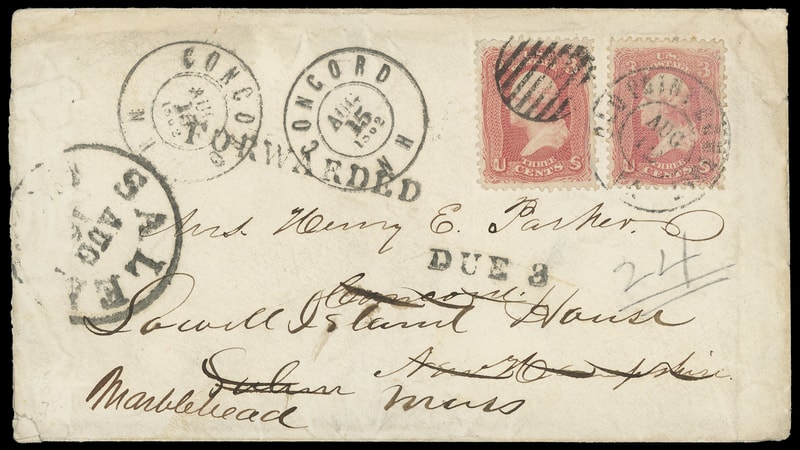 CONCORD
AUG
15
1862
N H
CONCORD
AUG
15
1862
N H
FORWARDED
SALEM
AUG
U THREE S
CENTS
3 3
U THREE S
CENTS
OLD POINT COMFORT
AUG
VA
Mrs. Henry E. Parker.
DUE 3
24
Concord.
Lowell Island House
Salem New Hampshire.
Marblehead Mass